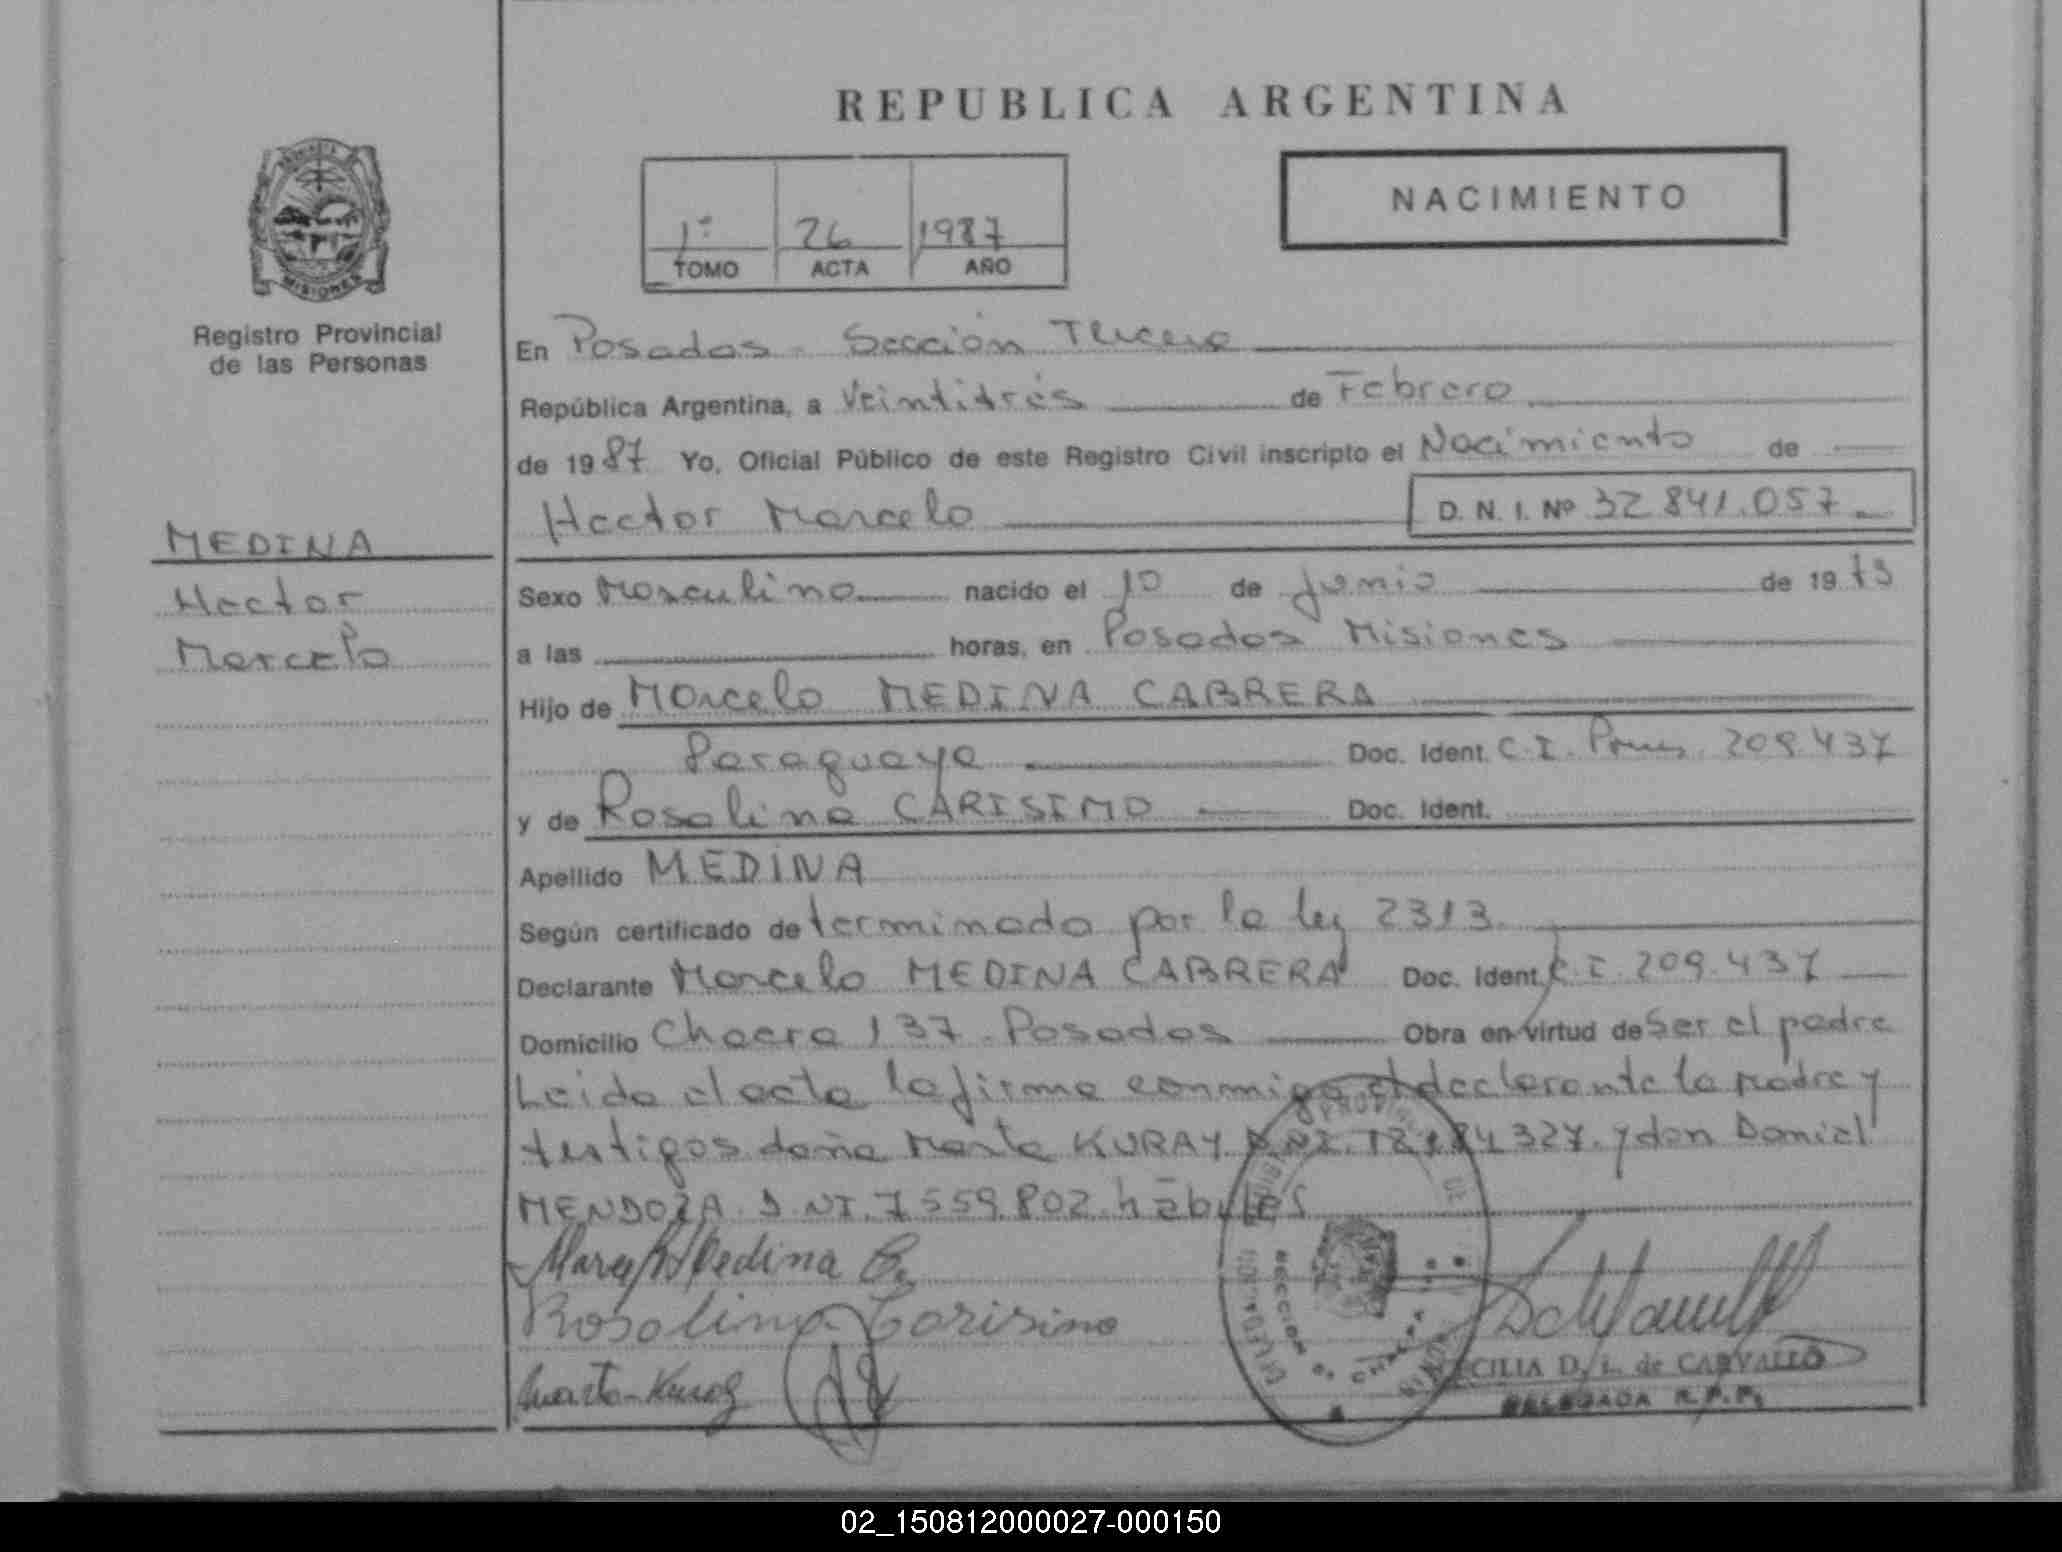 REPUBLICA ARGENTINA
NACIMIENTO
1º 26 1987
TOMO ACTA AÑO
PROVINCIA DE
MISIONES
Registro Provincial
de las Personas
MEDINA
Hector
Marcelo
En Posadas - Sección Tercera
República Argentina, a Veintitrés de Febrero
de 1987 Yo, Oficial Público de este Registro Civil inscripto el Nacimiento de
Hector Marcelo D. N. I. Nº 32.841.057
Sexo Masculino nacido el 10 de Junio de 1973
a las horas, en Posadas Misiones
Hijo de Marcelo MEDINA CABRERA
Paraguaya Doc. Ident. C.I. 209.437
y de Rosalina CARISIMO Doc. Ident.
Apellido MEDINA
Según certificado determinado por la ley 2313
Declarante Marcelo MEDINA CABRERA Doc. Ident. C.I. 209.437
Domicilio Chacra 137 - Posadas Obra en virtud de Ser el padre
Leida el acta la firma conmigo el declarante la Madre y
testigos doña Marta KURAY D.N.I. 18.184.327. y don Daniel
MENDOZA D.NI. 7559.802 hábiles
Marcelo Medina C
Rosalina Carisimo
Marta Kuray
CECILIA D. L. de CARVALLO
DELEGADA R.P.P.
02_150812000027-000150